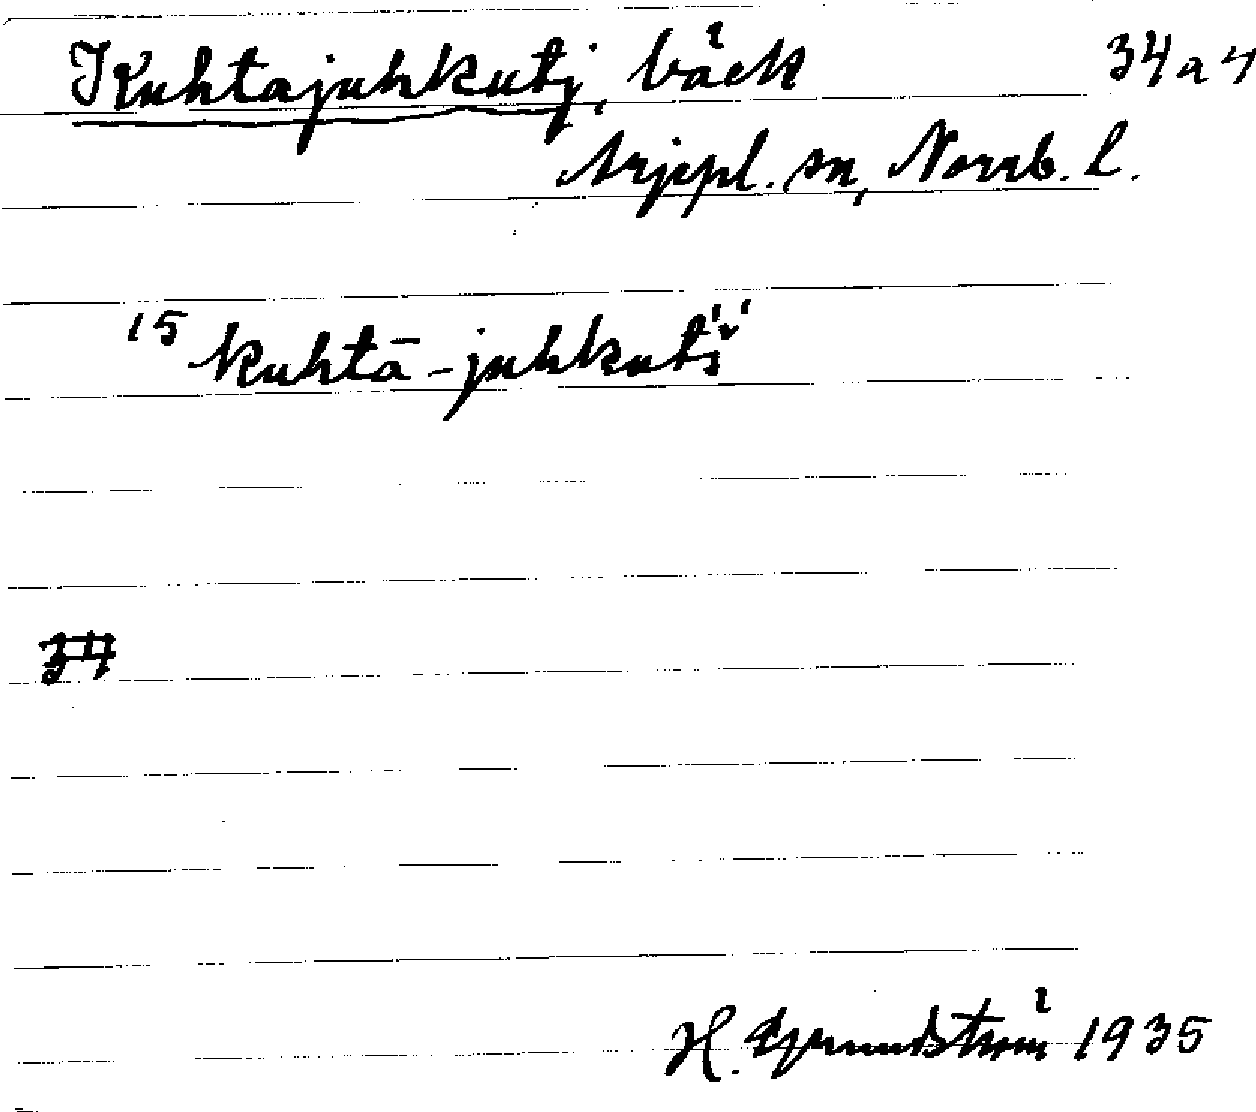 Kuhtajuhkutj, bäck 34 a 4
Arjepl. sn, Norrb. l.
15 kuhtā-juhkutš́
34
H. Grundström 1935